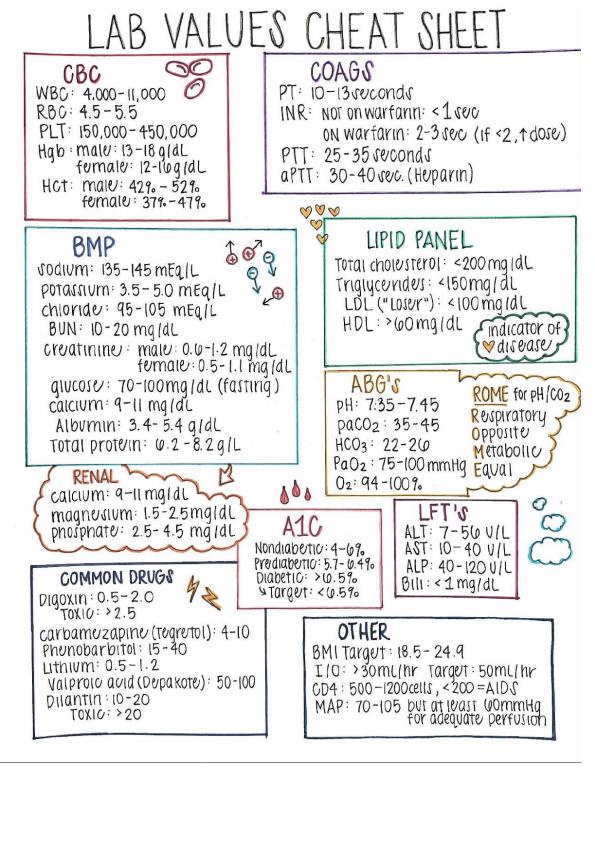 LAB VALUES CHEAT SHEET
CBC
WBC: 4,000-11,000
RBC: 4.5-5.5
PLT: 150,000-450,000
Hgb: male: 13-18 g/dL
female: 12-16 g/dL
Hct: male: 42%-52%
female: 37%-47%
COAGS
PT: 10-13 seconds
INR: NOT on warfarin: <1 sec
ON warfarin: 2-3 sec (if <2, ↑ dose)
PTT: 25-35 seconds
aPTT: 30-40 sec. (Heparin)
BMP
sodium: 135-145 mEq/L
potassium: 3.5-5.0 mEq/L
chloride: 95-105 mEq/L
BUN: 10-20 mg/dL
creatinine: male: 0.6-1.2 mg/dL
female: 0.5-1.1 mg/dL
glucose: 70-100 mg/dL (fasting)
calcium: 9-11 mg/dL
Albumin: 3.4-5.4 g/dL
Total protein: 6.2-8.2 g/L
LIPID PANEL
Total cholesterol: <200 mg/dL
Triglycerides: <150 mg/dL
LDL ("Loser"): <100 mg/dL
HDL: >60 mg/dL
indicator of
disease
ABG's
pH: 7.35-7.45
paCO2: 35-45
HCO3: 22-26
PaO2: 75-100 mmHg
O2: 94-100%
ROME for pH/CO2
Respiratory
Opposite
Metabolic
Equal
RENAL
calcium: 9-11 mg/dL
magnesium: 1.5-2.5 mg/dL
phosphate: 2.5-4.5 mg/dL
A1C
Nondiabetic: 4-6%
Prediabetic: 5.7-6.4%
Diabetic: >6.5%
↳ Target: <6.5%
LFT's
ALT: 7-56 U/L
AST: 10-40 U/L
ALP: 40-120 U/L
Bili: <1 mg/dL
COMMON DRUGS
Digoxin: 0.5-2.0
Toxic: >2.5
carbamezapine (Tegretol): 4-10
Phenobarbitol: 15-40
Lithium: 0.5-1.2
valproic acid (Depakote): 50-100
Dilantin: 10-20
Toxic: >20
OTHER
BMI Target: 18.5-24.9
I/O: >30mL/hr Target: 50mL/hr
CD4: 500-1200cells, <200=AIDS
MAP: 70-105 but at least 60mmHg
for adequate perfusion